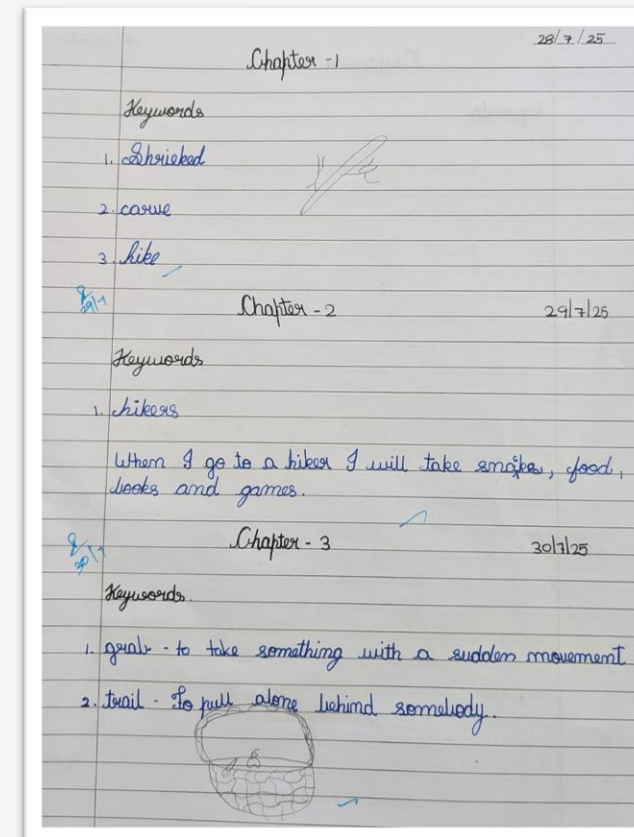 28/7/25
Chapter - 1
Keywords
1. Shrieked
2. carve
3. hike
29/7
Chapter - 2 29/7/25
Keywords
1. hikers
When I go to a hiker I will take snakes, food,
books and games.
30/7
Chapter - 3 30/7/25
Keywords.
1. grab - to take something with a sudden movement
2. trail - To pull alone behind somebody.